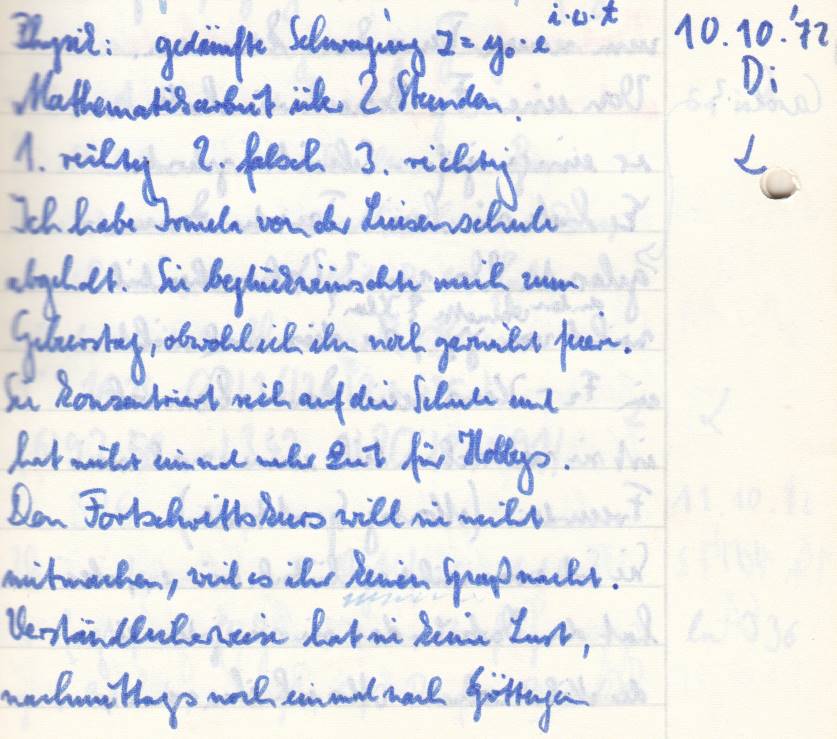 Physik: gedämfte Schwingung y = y₀ · e^{i·ω·t}
10.10.'72
Di
Mathematikarbeit über 2 Stunden.
1. richtig 2. falsch 3. richtig
Ich habe Irmela von der Luisenschule
abgeholt. Sie beglückwünschte mich zum
Geburtstag, obwohl ich ihn noch gar nicht feiere.
Sie konzentriert sich auf die Schule und
hat nicht einmal mehr Zeit für Hobbys.
Den Fortschrittskurs will sie nicht
mitmachen, weil es ihr keinen Spaß macht.
Verständlicherweise hat sie keine Lust,
nachmittags noch einmal nach Göttingen